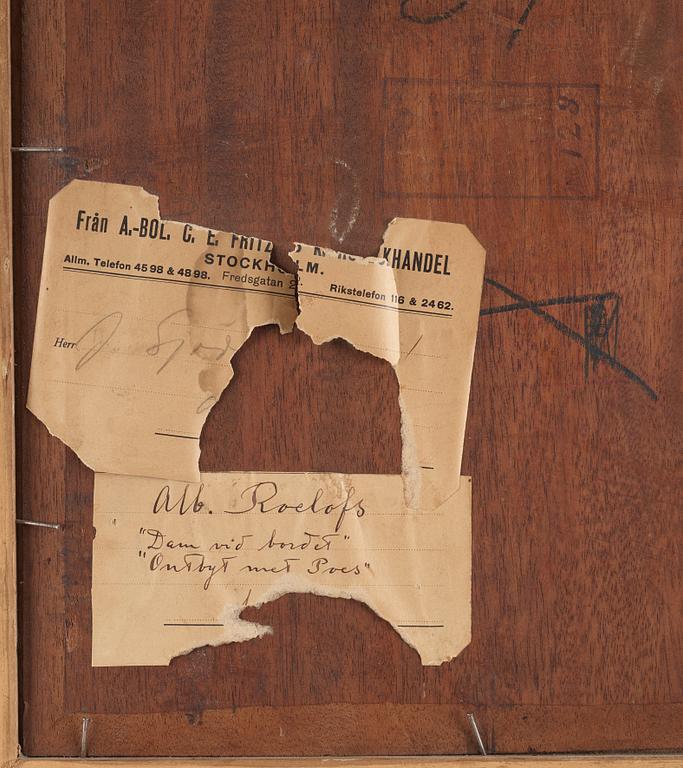 129
Från A.-BOL. C. E. FRITZ KHANDEL
STOCKHOLM.
Allm. Telefon 4598 & 4898. Fredsgatan 2. Rikstelefon 116 & 2462.
Herr J.
Alb. Roelofs
"Dam vid bordet"
"Ontbyt met Poes"